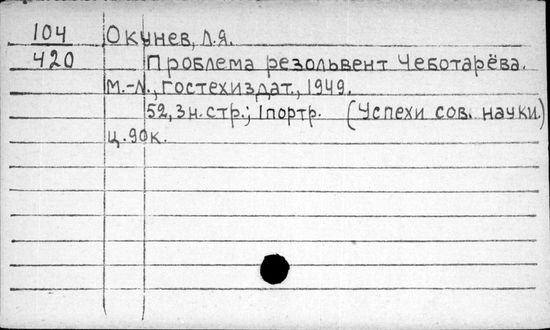 104 Окунев, Л.Я.
420 Проблема резольвент Чеботарёва.
М.-Л., Гостехиздат, 1949.
52, 3 н. стр.; 1 портр. (Успехи сов. науки.)
Ц. 90 к.